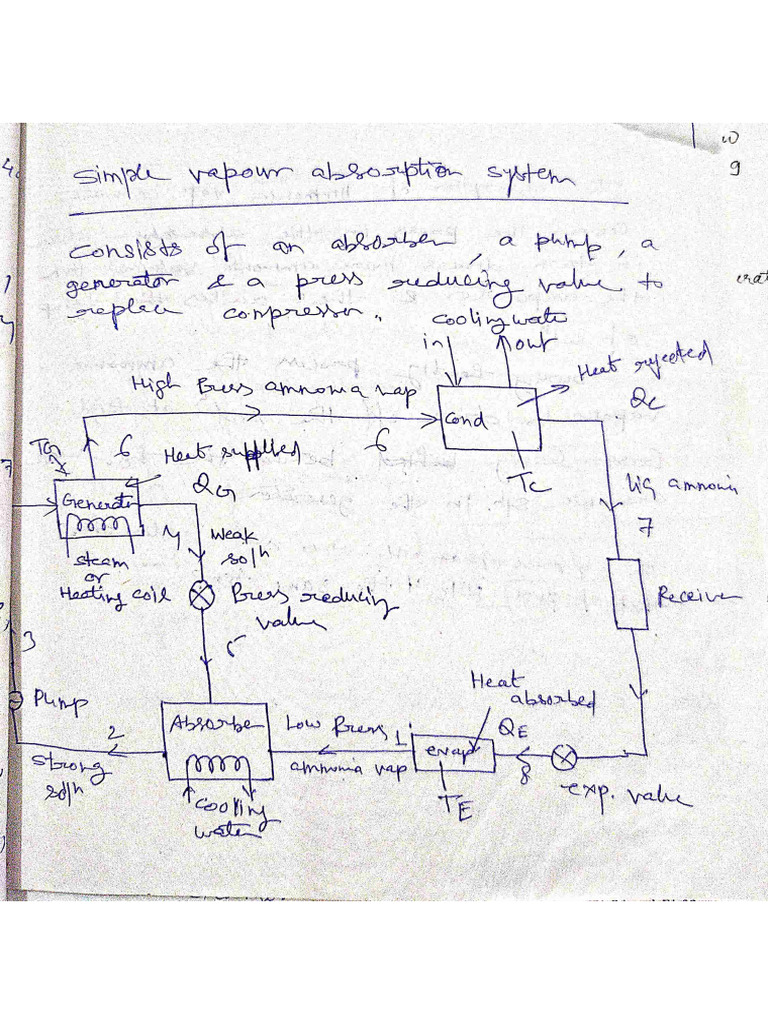 Simple vapour absorption system
consists of an absorber, a pump, a
generator & a press reducing valve to
replace compressor.
cooling water
in out
Heat rejected
QC
High Press ammonia vap
Cond
6 6
TG
Heat supplied
QG
TC
Generator
liq ammonia
7
4 weak
soln
steam
or
Heating coil
Press reducing
valve
Receiver
3
5
Pump
Heat
absorbed
QE
2
Absorber
Low Press 1
ammonia vap
evap
8
strong
soln
cooling
water
TE
exp. valve
4.
7
w
g